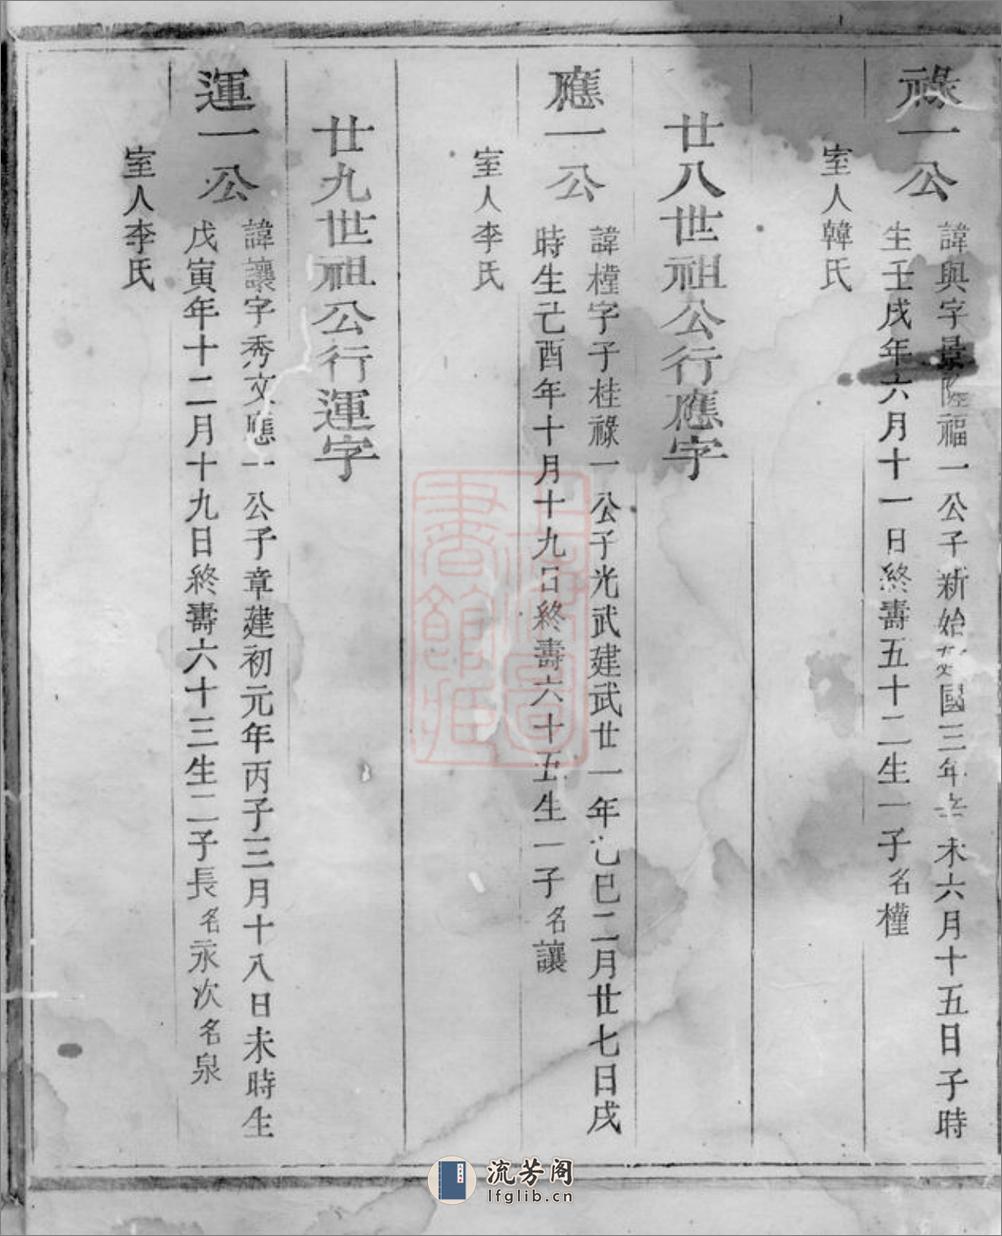 祿一公
諱與字景隆福一公子新始建國三年辛未六月十五日子時
生壬戌年六月十一日終壽五十二生一子名權
室人韓氏
廿八世祖公行應字
應一公
諱權字子桂祿一公子光武建武廿一年乙巳二月廿七日戌
時生己酉年十月十九日終壽六十五生一子名讓
室人李氏
廿九世祖公行運字
運一公
諱讓字秀文應一公子章建初元年丙子三月十八日未時生
戊寅年十二月十九日終壽六十三生二子長名永次名泉
室人李氏
上海圖書館藏
流芳阁
lfglib.cn